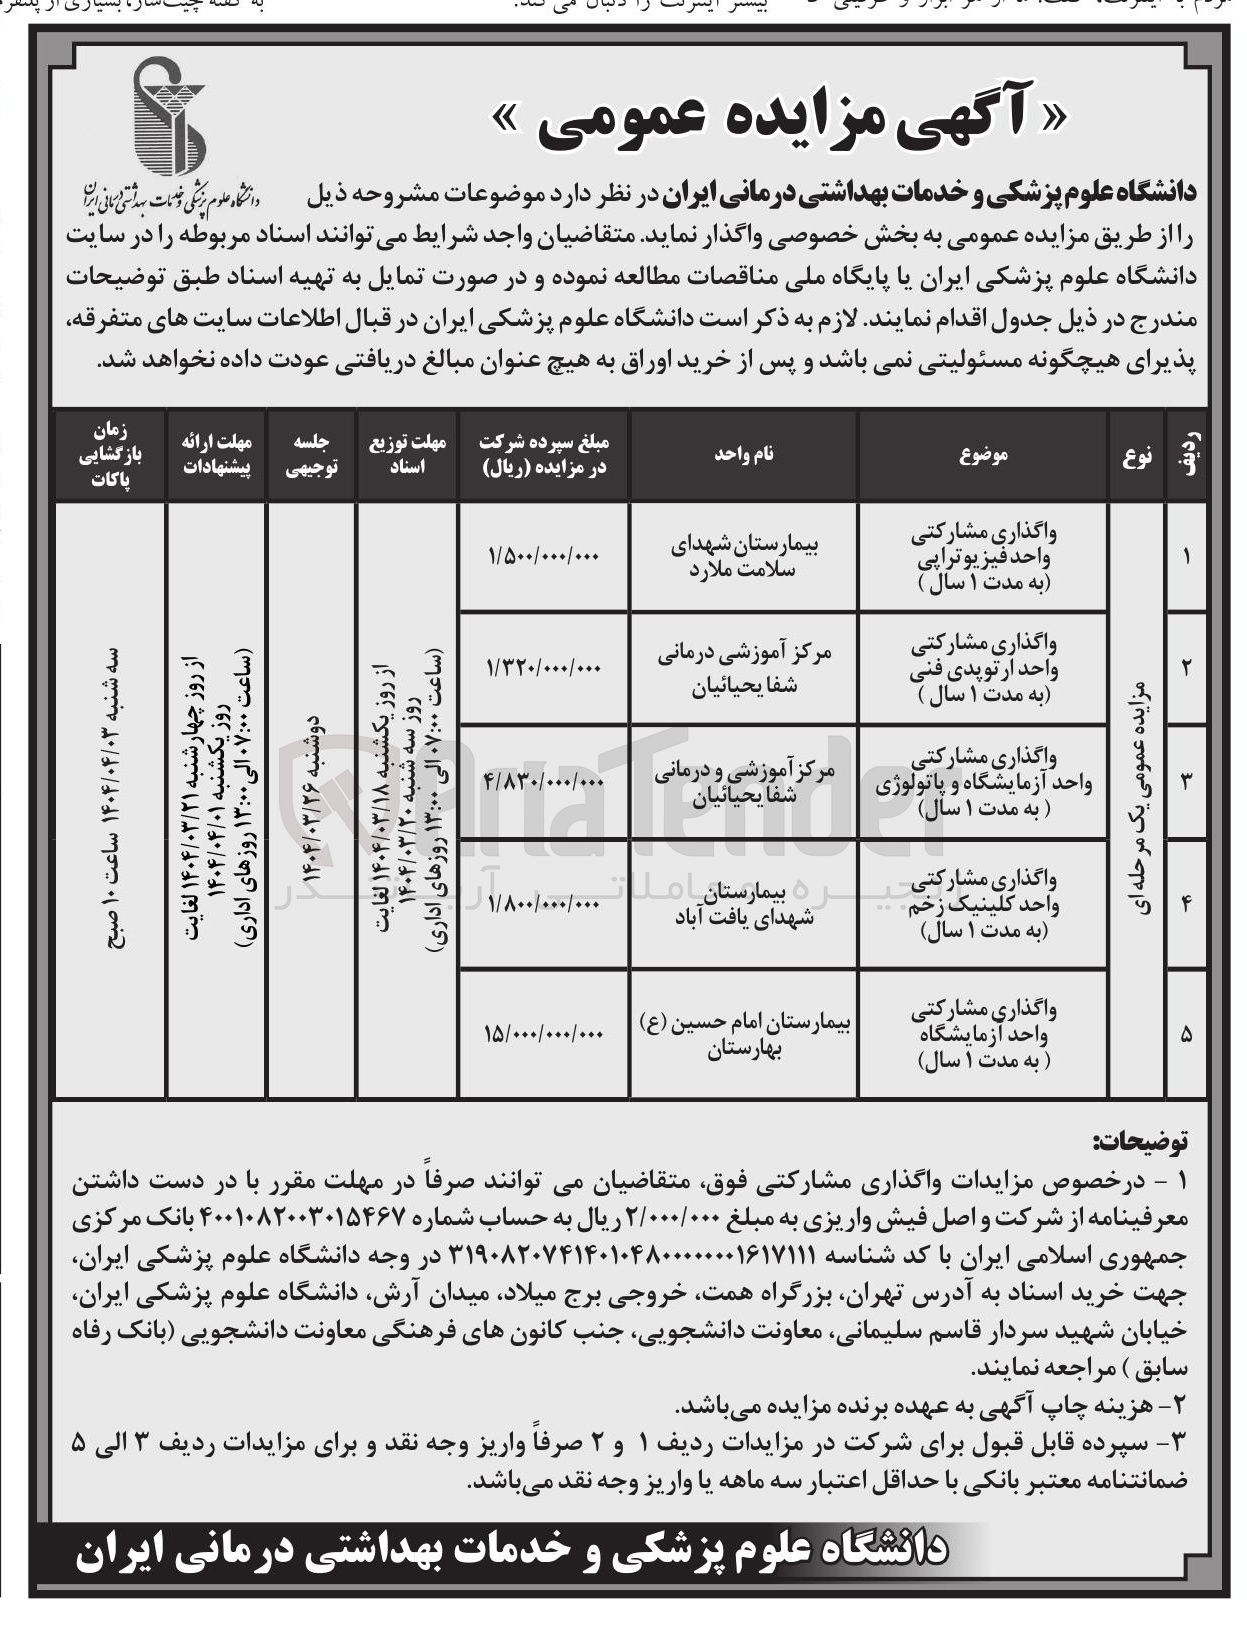 « آگهی مزایده عمومی »
دانشگاه علوم پزشکی و خدمات بهداشتی درمانی ایران
دانشگاه علوم پزشکی و خدمات بهداشتی درمانی ایران در نظر دارد موضوعات مشروحه ذیل
را از طریق مزایده عمومی به بخش خصوصی واگذار نماید. متقاضیان واجد شرایط می توانند اسناد مربوطه را در سایت
دانشگاه علوم پزشکی ایران یا پایگاه ملی مناقصات مطالعه نموده و در صورت تمایل به تهیه اسناد طبق توضیحات
مندرج در ذیل جدول اقدام نمایند. لازم به ذکر است دانشگاه علوم پزشکی ایران در قبال اطلاعات سایت های متفرقه،
پذیرای هیچگونه مسئولیتی نمی باشد و پس از خرید اوراق به هیچ عنوان مبالغ دریافتی عودت داده نخواهد شد.
ردیف
نوع
موضوع
نام واحد
مبلغ سپرده شرکت
در مزایده (ریال)
مهلت توزیع
اسناد
جلسه
توجیهی
مهلت ارائه
پیشنهادات
زمان
بازگشایی
پاکات
۱
مزایده عمومی یک مرحله ای
واگذاری مشارکتی
واحد فیزیوتراپی
(به مدت ۱ سال )
بیمارستان شهدای
سلامت ملارد
۱/۵۰۰/۰۰۰/۰۰۰
از روز یکشنبه ۱۴۰۴/۰۳/۱۸ لغایت
روز سه شنبه ۱۴۰۴/۰۳/۲۰
(ساعت ۰۷:۰۰ الی ۱۳:۰۰ روزهای اداری)
دوشنبه ۱۴۰۴/۰۳/۲۶
از روز چهارشنبه ۱۴۰۴/۰۳/۲۱ لغایت
روز یکشنبه ۱۴۰۴/۰۴/۰۱
(ساعت ۰۷:۰۰ الی ۱۳:۰۰ روزهای اداری)
سه شنبه ۱۴۰۴/۰۴/۰۳ ساعت ۱۰ صبح
۲
واگذاری مشارکتی
واحد ارتوپدی فنی
(به مدت ۱ سال )
مرکز آموزشی درمانی
شفا یحیائیان
۱/۳۲۰/۰۰۰/۰۰۰
۳
واگذاری مشارکتی
واحد آزمایشگاه و پاتولوژی
( به مدت ۱ سال)
مرکز آموزشی و درمانی
شفا یحیائیان
۴/۸۳۰/۰۰۰/۰۰۰
۴
واگذاری مشارکتی
واحد کلینیک زخم
(به مدت ۱ سال)
بیمارستان
شهدای یافت آباد
۱/۸۰۰/۰۰۰/۰۰۰
۵
واگذاری مشارکتی
واحد آزمایشگاه
( به مدت ۱ سال)
بیمارستان امام حسین (ع)
بهارستان
۱۵/۰۰۰/۰۰۰/۰۰۰
AriaTender
توضیحات:
۱ - درخصوص مزایدات واگذاری مشارکتی فوق، متقاضیان می توانند صرفاً در مهلت مقرر با در دست داشتن
معرفینامه از شرکت و اصل فیش واریزی به مبلغ ۲/۰۰۰/۰۰۰ ریال به حساب شماره ۴۰۰۱۰۸۲۰۰۳۰۱۵۴۶۷ بانک مرکزی
جمهوری اسلامی ایران با کد شناسه ۳۱۹۰۸۲۰۷۴۱۴۰۱۰۴۸۰۰۰۰۰۰۰۱۶۱۷۱۱۱ در وجه دانشگاه علوم پزشکی ایران،
جهت خرید اسناد به آدرس تهران، بزرگراه همت، خروجی برج میلاد، میدان آرش، دانشگاه علوم پزشکی ایران،
خیابان شهید سردار قاسم سلیمانی، معاونت دانشجویی، جنب کانون های فرهنگی معاونت دانشجویی (بانک رفاه
سابق ) مراجعه نمایند.
۲- هزینه چاپ آگهی به عهده برنده مزایده می‌باشد.
۳- سپرده قابل قبول برای شرکت در مزایدات ردیف ۱ و ۲ صرفاً واریز وجه نقد و برای مزایدات ردیف ۳ الی ۵
ضمانتنامه معتبر بانکی با حداقل اعتبار سه ماهه یا واریز وجه نقد می‌باشد.
دانشگاه علوم پزشکی و خدمات بهداشتی درمانی ایران